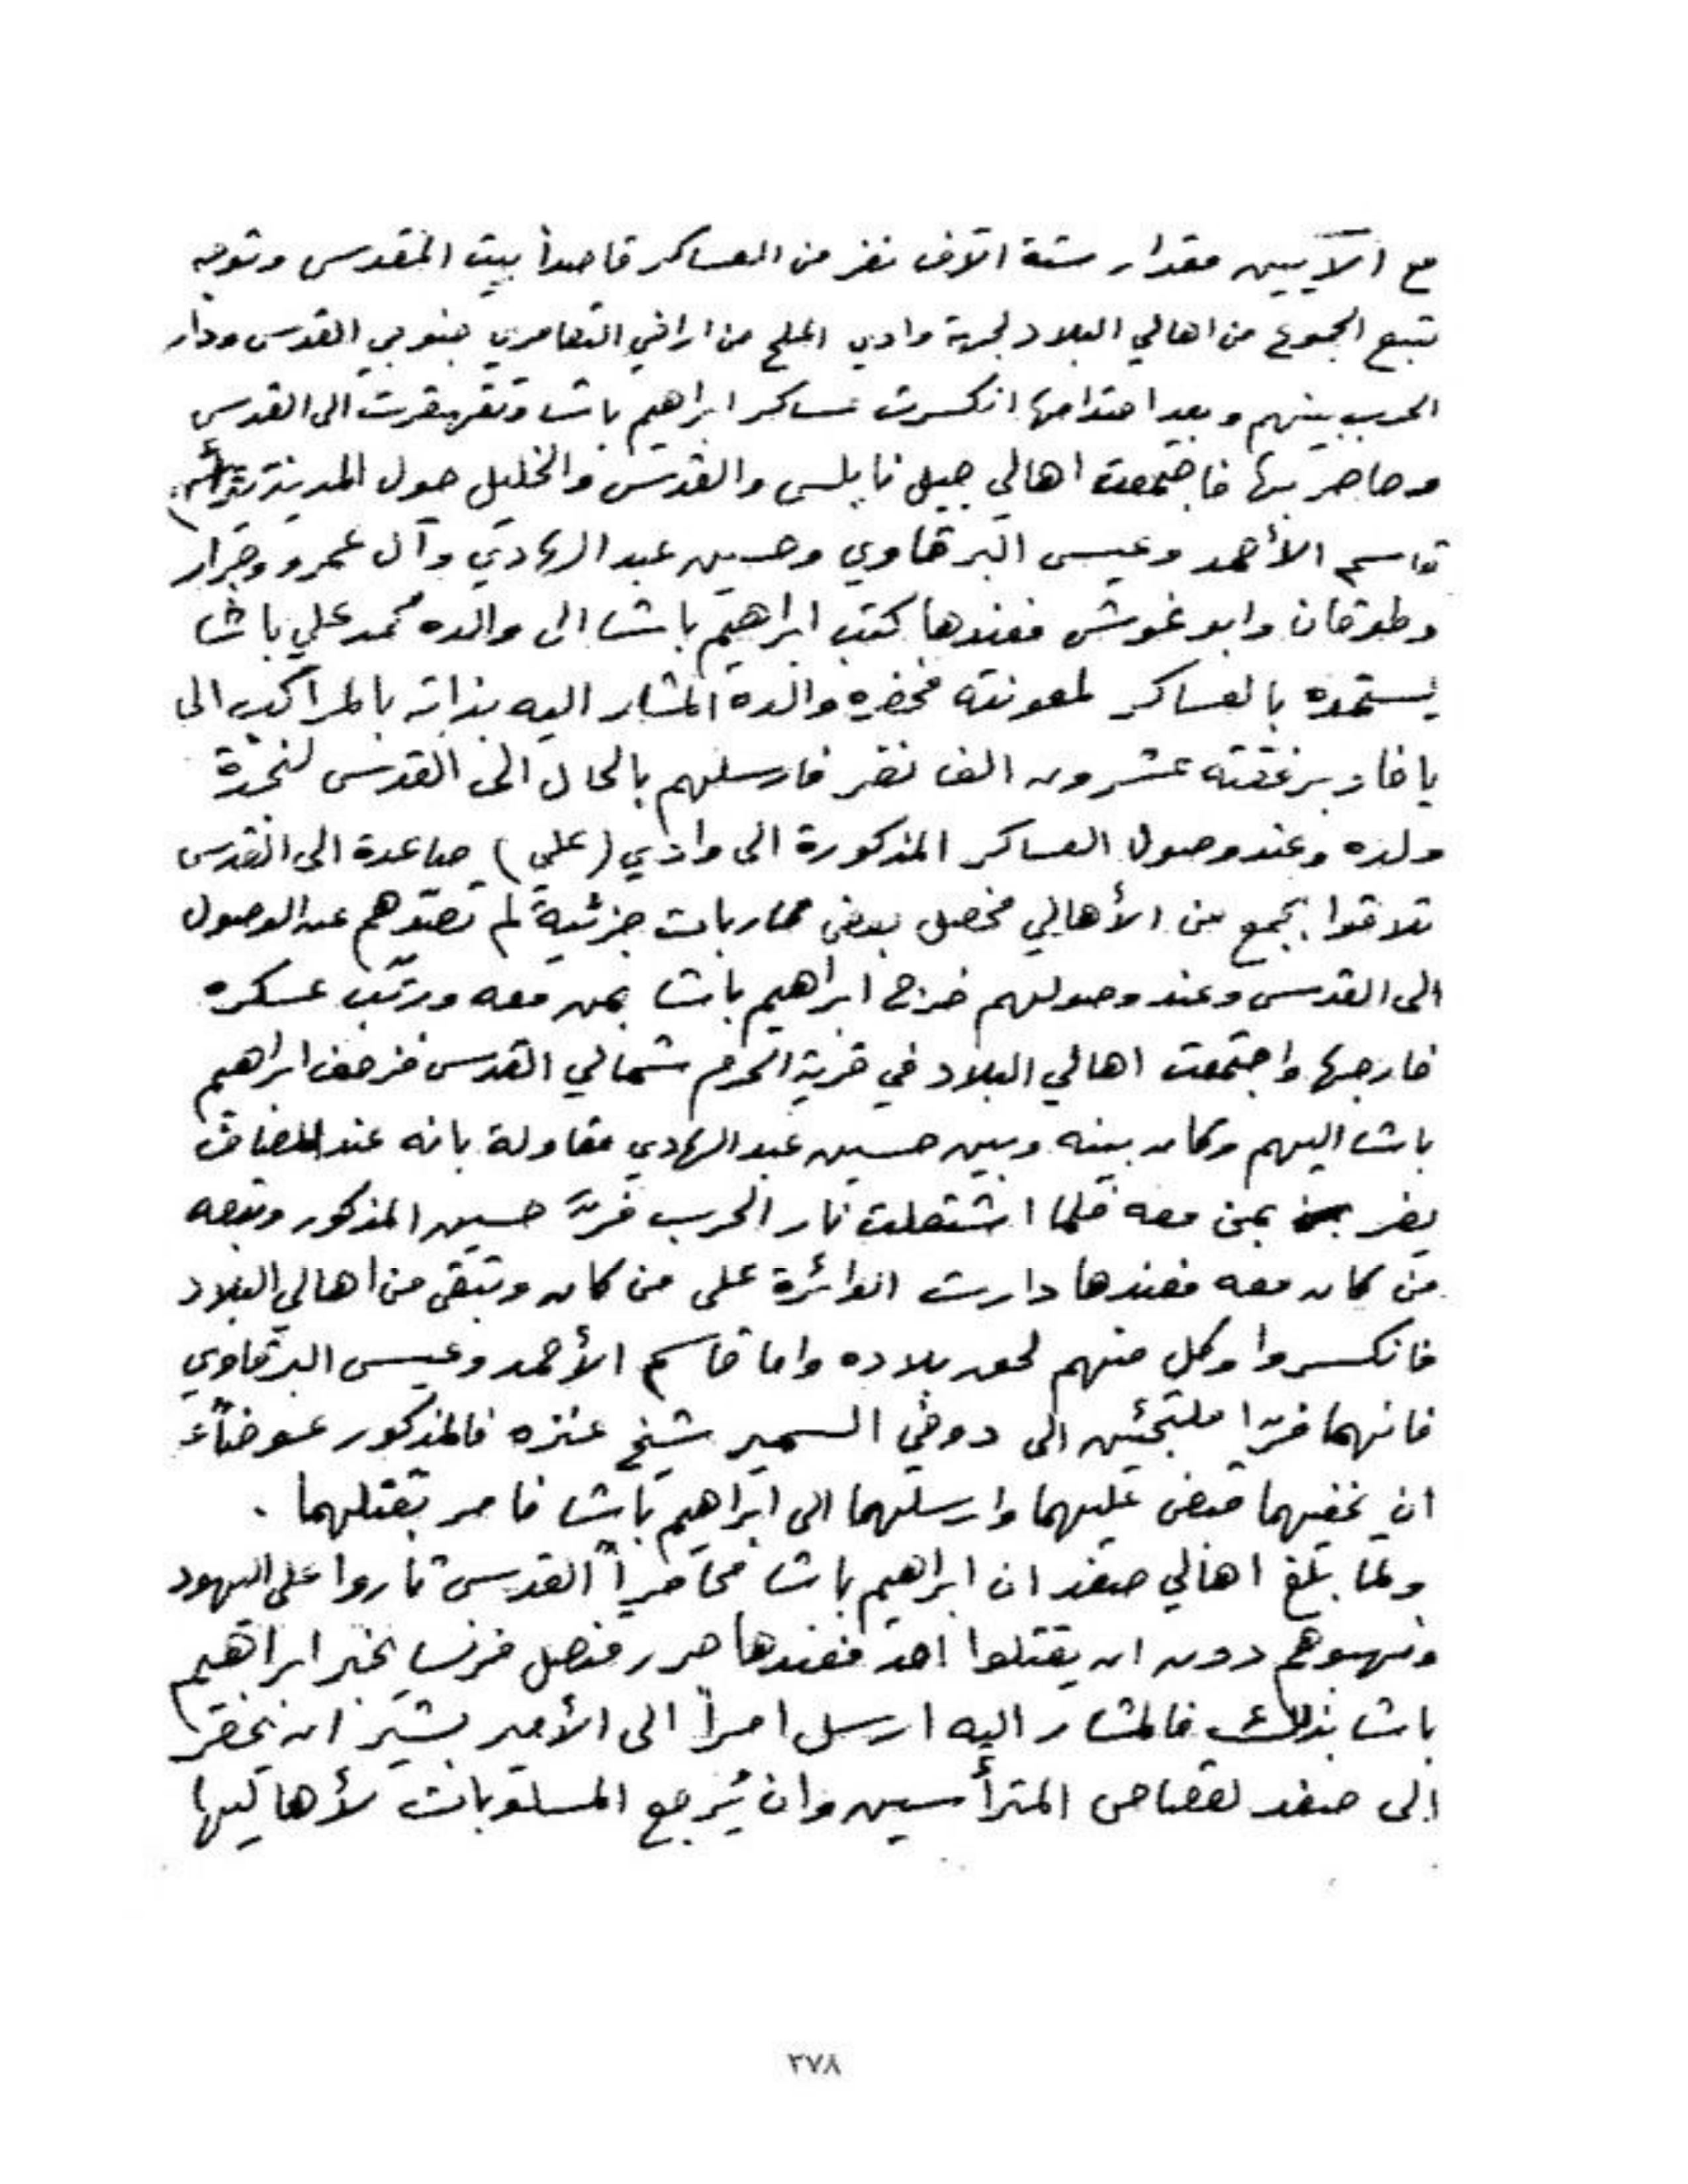 مع الآلايين مقدار ستة الآف نفر من العساكر قاصداً بيت المقدس وتوجه
تتبع الجموع من اهالي البلاد لجهة وادي الملح من اراضي التعامري جنوبي القدس ودار
الحرب بينهم وبعد احتدامها انكسرت عساكر ابراهيم باشا وتقهقرت الى القدس
وحاصر بها فاجتمعت اهالي جبل نابلس والقدس والخليل حول المدينة
قاسم الأحمد وعيسى البرقاوي وحسين عبد الهادي وآل عمرو وجرار
وطوقان وابو غوش فعندها كتب ابراهيم باشا الى والده محمد علي باشا
يستمده بالعساكر لمعونته فحضره والده المشار اليه بذاته بالمراكب الى
يافا وبرفقته عشرون الف نفر فارسلهم بالحال الى القدس لنجدة
ولده وعند وصول العساكر المذكورة الى وادي (علي) صاعدة الى القدس
تلاقوا بجمع من الأهالي فحصل بعض محاربات جزئية لم تصدّهم عن الوصول
الى القدس وعند وصولهم خرج ابراهيم باشا بمن معه ورتّب عسكره
خارجها واجتمعت اهالي البلاد في قرية الحرم شمالي القدس فزحف ابراهيم
باشا اليهم وكان بينه وبين حسين عبد الهادي مقاولة بانه عند المصاف
يفر بمن معه فلما اشتعلت نار الحرب فرّ حسين المذكور وتبعه
من كان معه فعندها دارت الدائرة على من كان وتبقى من اهالي البلاد
فانكسروا وكل منهم لحق بلاده واما قاسم الأحمد وعيسى البرقاوي
فانهما فرّا ملتجئين الى دوخي السمير شيخ عنزه فالمذكور عوضاً عـ
ان يخفيهما قبض عليهما وارسلهما الى ابراهيم باشا فامر بقتلهما .
ولما بلغ اهالي صفد ان ابراهيم باشا محاصراً القدس ثاروا على اليهود
ونهبوهم دون ان يقتلوا احد فعندها حرر قنصل فرنسا يخبر ابراهيم
باشا بذلك فالمشار اليه ارسل امراً الى الأمير بشير ان يحضر
الى صفد لقصاص المترأسين وان يُرجع المسلوبات لأهاليها
٢٧٨